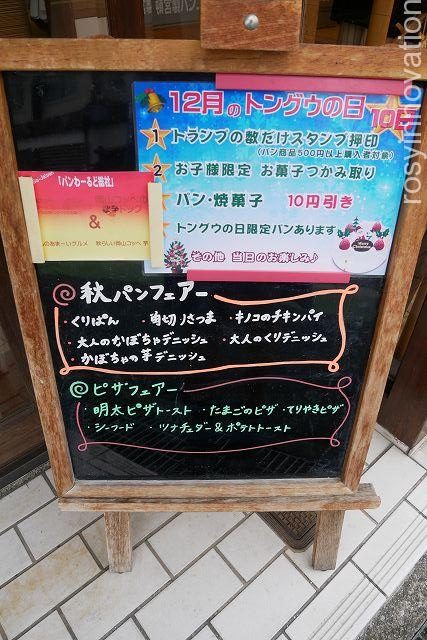 12月のトングウの日
10日
1 トランプの数だけスタンプ押印
(パン商品500円以上購入者対象)
2 お子様限定 お菓子つかみ取り
パン・焼菓子 10円引き
トングウの日限定パンあります
その他 当日のお楽しみ♪
Merry Christmas
「パンわーるど総社」
&
のあま～いグルメ 秋らしい岡山コッペ 芋
秋パンフェアー
・くりぱん ・角切りさつま ・キノコのチキンパイ
・大人のかぼちゃデニッシュ ・大人のくりデニッシュ
・かぼちゃの芋デニッシュ
ピザフェアー
・明太ピザトースト ・たまごのピザ ・てりやきピザ
・シーフード ・ツナチェダー&ポテトトースト
rosyinnovation